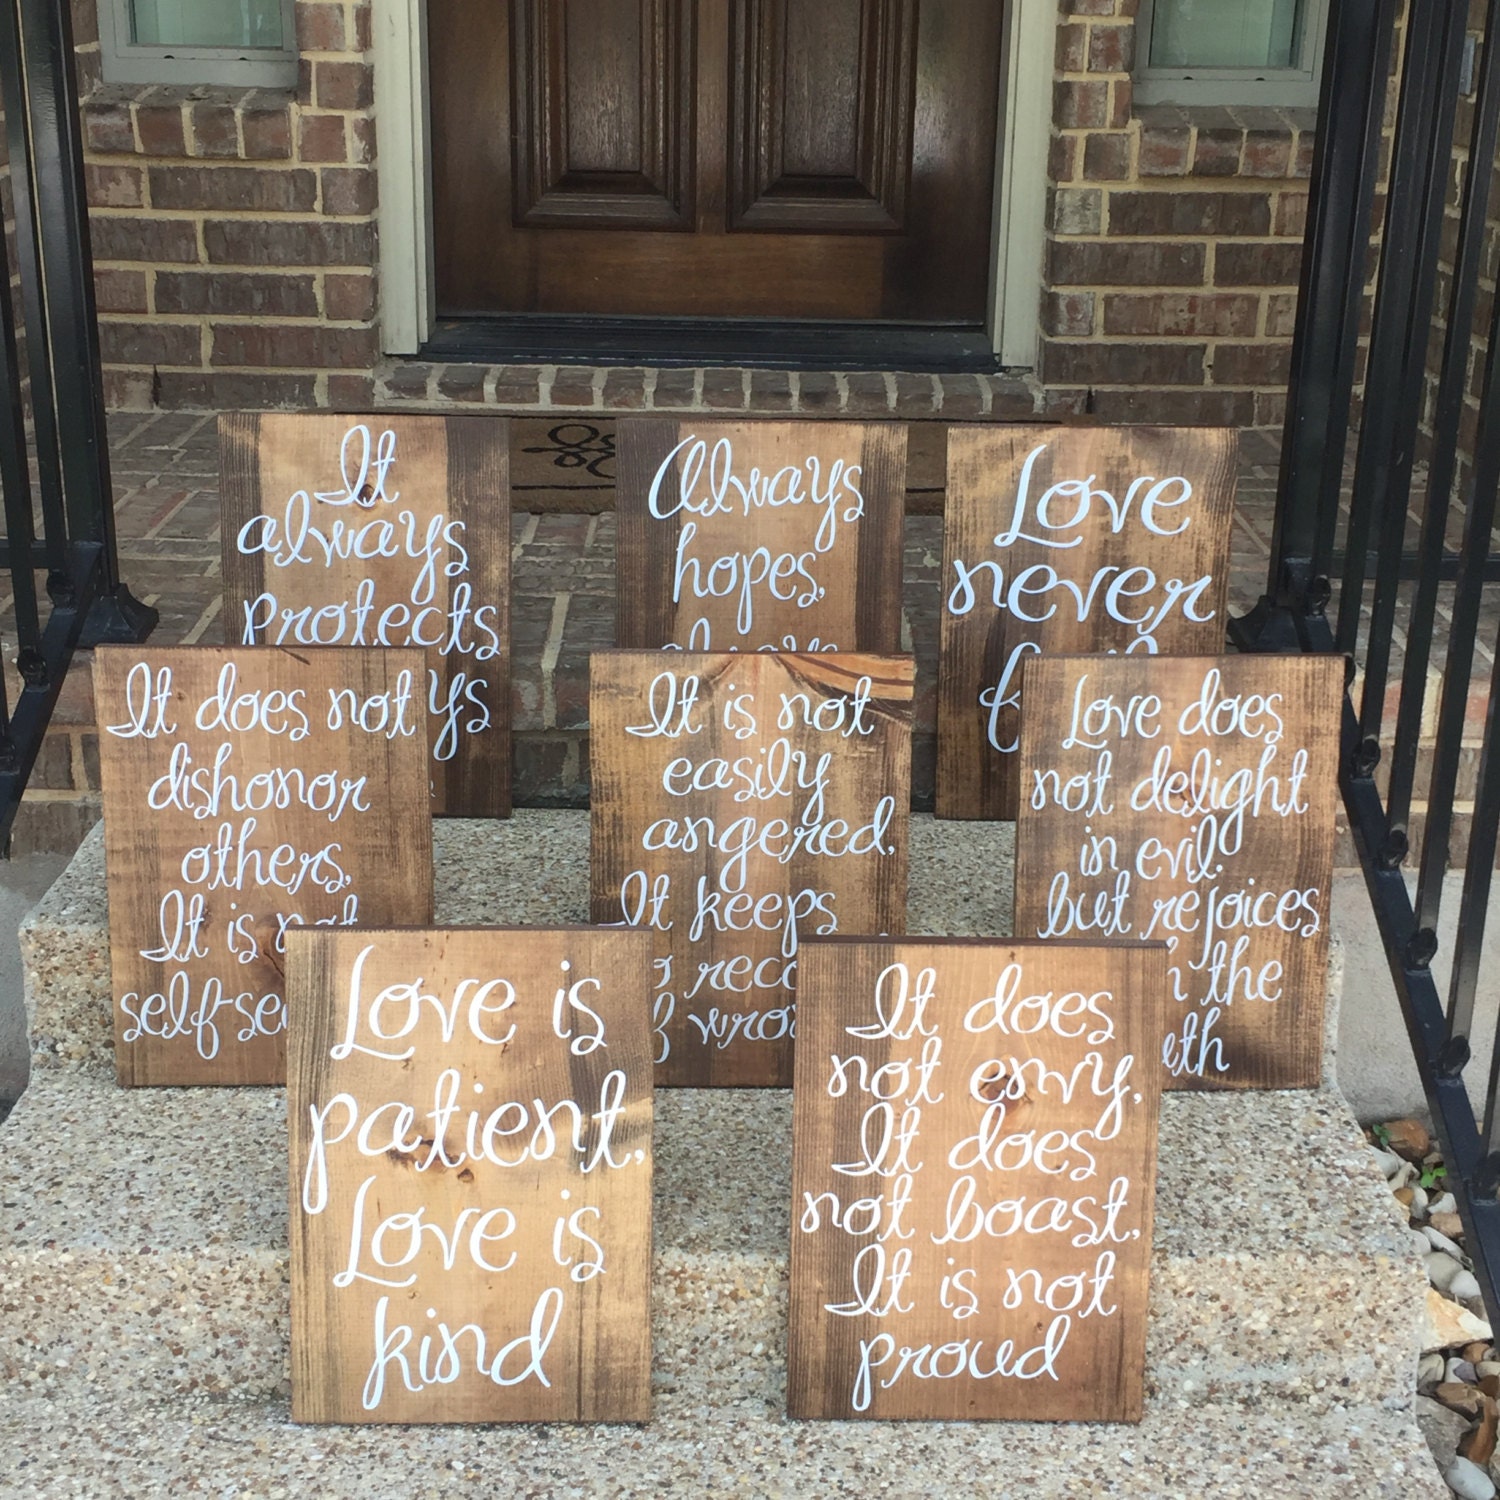 It
always
protects
Always
hopes,
always
Love
never
It does not
dishonor
others,
It is not
It is not
easily
angered,
It keeps
Love does
not delight
in evil.
but rejoices
the
Love is
patient,
Love is
kind
It does
not envy,
It does
not boast,
It is not
proud